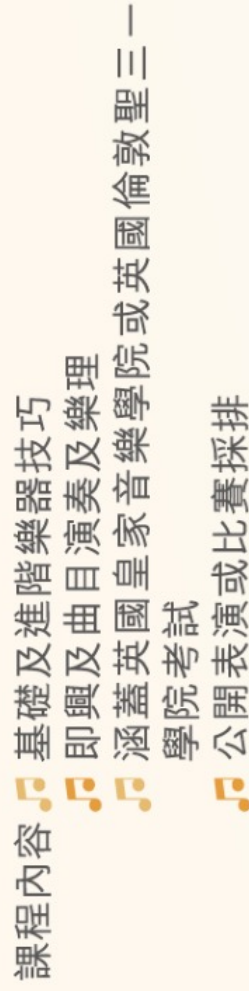 課程內容
基礎及進階樂器技巧
即興及曲目演奏及樂理
涵蓋英國皇家音樂學院或英國倫敦聖三一
學院考試
公開表演或比賽採排